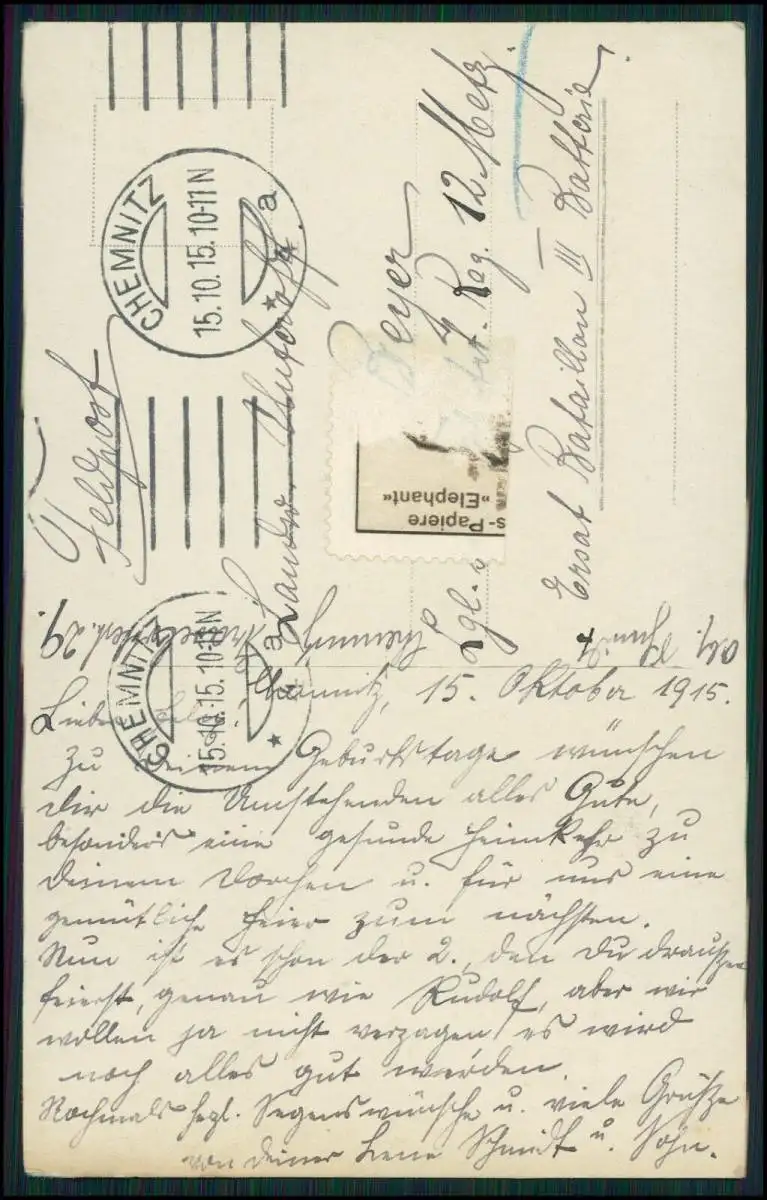 Feldpost
CHEMNITZ
15.10.15.10-11 N
a
CHEMNITZ
15.10.15.10-11 N
a
Beyer
Reg. 12 Metz.
Ersat Bataillon III Batterie
Kgl.
s-Papiere
»Elephant«
Chemnitz
29.
Chemnitz, 15. Oktober 1915.
Lieber
Zu Deinem Geburtstage wünschen
Dir die Umstehenden alles Gute,
besonders eine gesunde Heimkehr zu
Deinem Dorchen u. für uns eine
gemütliche Feier zum nächsten.
Nun ist es schon der 2., den Du draußen
feierst, genau wie Rudolf, aber wir
wollen ja nicht verzagen es wird
noch alles gut werden.
Nochmals herzl. Segenswünsche u. viele Grüße
von Deiner Lene Schmidt u. Sohn.